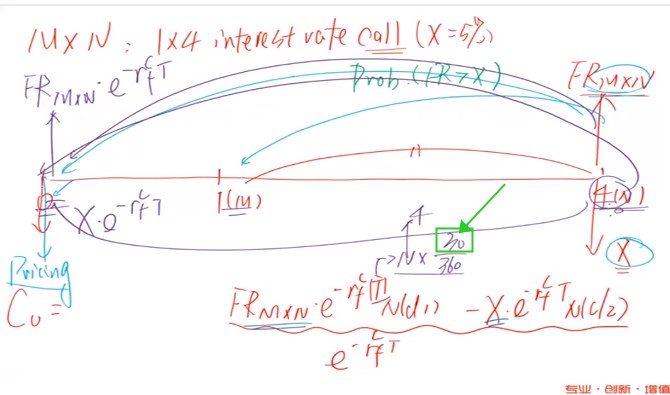 M×N: 1×4 interest rate call (X=5%)
FR_{M×N}·e^{-r_f^c T}
Prob.(FR>X)
FR_{M×N}
1(M)
4(N)
X·e^{-r_f^c T}
X
30
N×
360
Pricing
C₀=
FR_{M×N}·e^{-r_f^c T}N(d₁) -X·e^{-r_f^c T}N(d₂)
e^{-r_f^c T}
专业·创新·增值